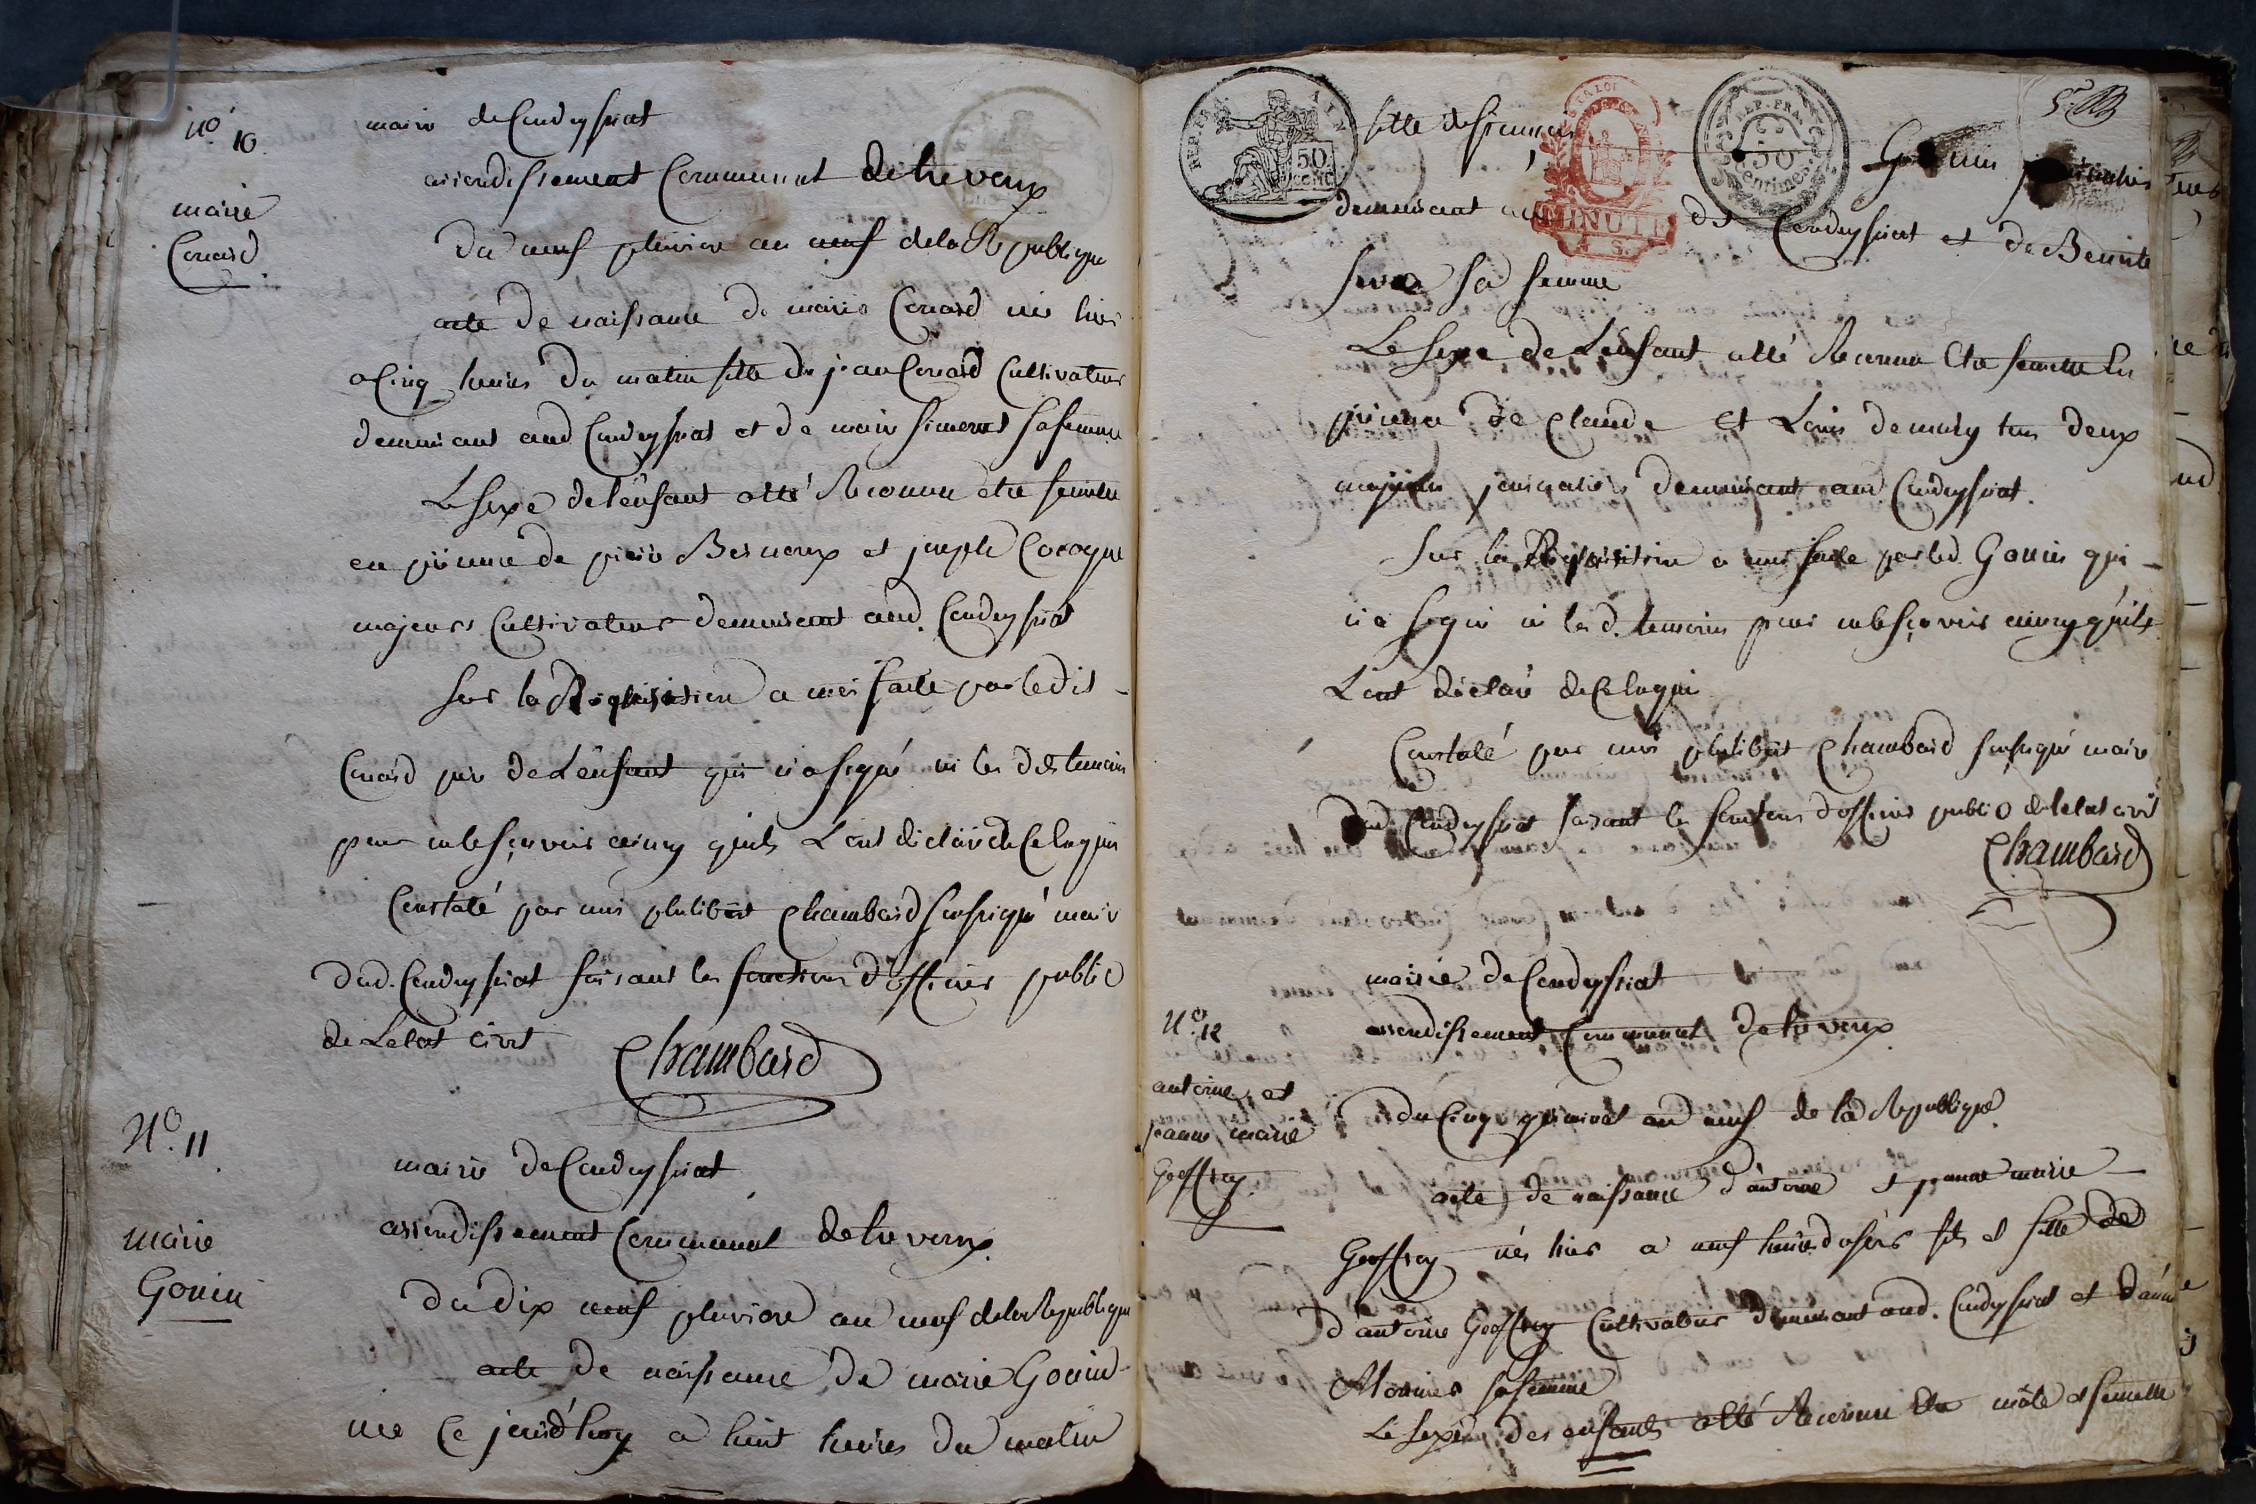 N.º 10.
marie
Conard
mairie de Condeyssiat
arrondissement Communal de trevoux
Du neuf pluviose an neuf de la Republique
acte de naissance de marie Conard née hier
a Cinq heures du matin fille de jean Conard Cultivateur
demeurant aud Condeyssiat et de marie Simonet sa femme
Le sexe de l'enfant a été Reconnu etre femelle
en présence de pierre Berneoux et joseph Cocogne
majeurs Cultivateurs demeurant aud. Condeyssiat
sur la Requisition a moi faite par ledit
Conard père de L'enfant qui n'a signé ni les dts temoins
pour ne le sçavoir ainsy qu'ils L'ont déclaré de Ce Enquis
Constaté par moi philibert Chambard soussigné maire
dud. Condeyssiat faisant les fonctions d'officier public
de Letat civil
Chambard
N.º 11.
marie
Gonin
mairie de Condeyssiat
arrondissement Communal de trevoux
Du dix neuf pluviose an neuf de la Republique
acte de naissance de marie Gonin
née Ce jourd'huy a huit heures du matin
5
REP. FRA.
AIN
50
CENT
MINUTE
A. S.
REP. FRA.
50
Centimes
fille de francois Gonin
demeurant aud. Condeyssiat et de Benoite
sa femme
Le sexe de L'enfant a été Reconnu Etre femelle En
présence de Claude et Louis demary tous deux
majeurs journaliers demeurant aud. Condeyssiat.
Sur la Requisition a moi faite par led. Gonin qui
n'a signé ni les d. temoins pour ne le sçavoir ainsy qu'ils
L'ont déclaré de Ce Enquis
Constaté par moi philibert Chambard soussigné maire
dud. Condeyssiat faisant les fonctions d'officier public de letat civil
Chambard
N.º 12
antoine et
jeanne marie
Geoffray
mairie de Condeyssiat
arrondissement Communal de trevoux
du Cinq germinal an neuf de la Republique
acte de naissance d'antoine et jeanne marie
Geoffray nés hier a neuf heures du soir fils et fille de
d'antoine Geoffray Cultivateur demeurant aud. Condeyssiat et d'anne
sa femme
Le sexe des enfants a été Reconnu Etre mâle et femelle